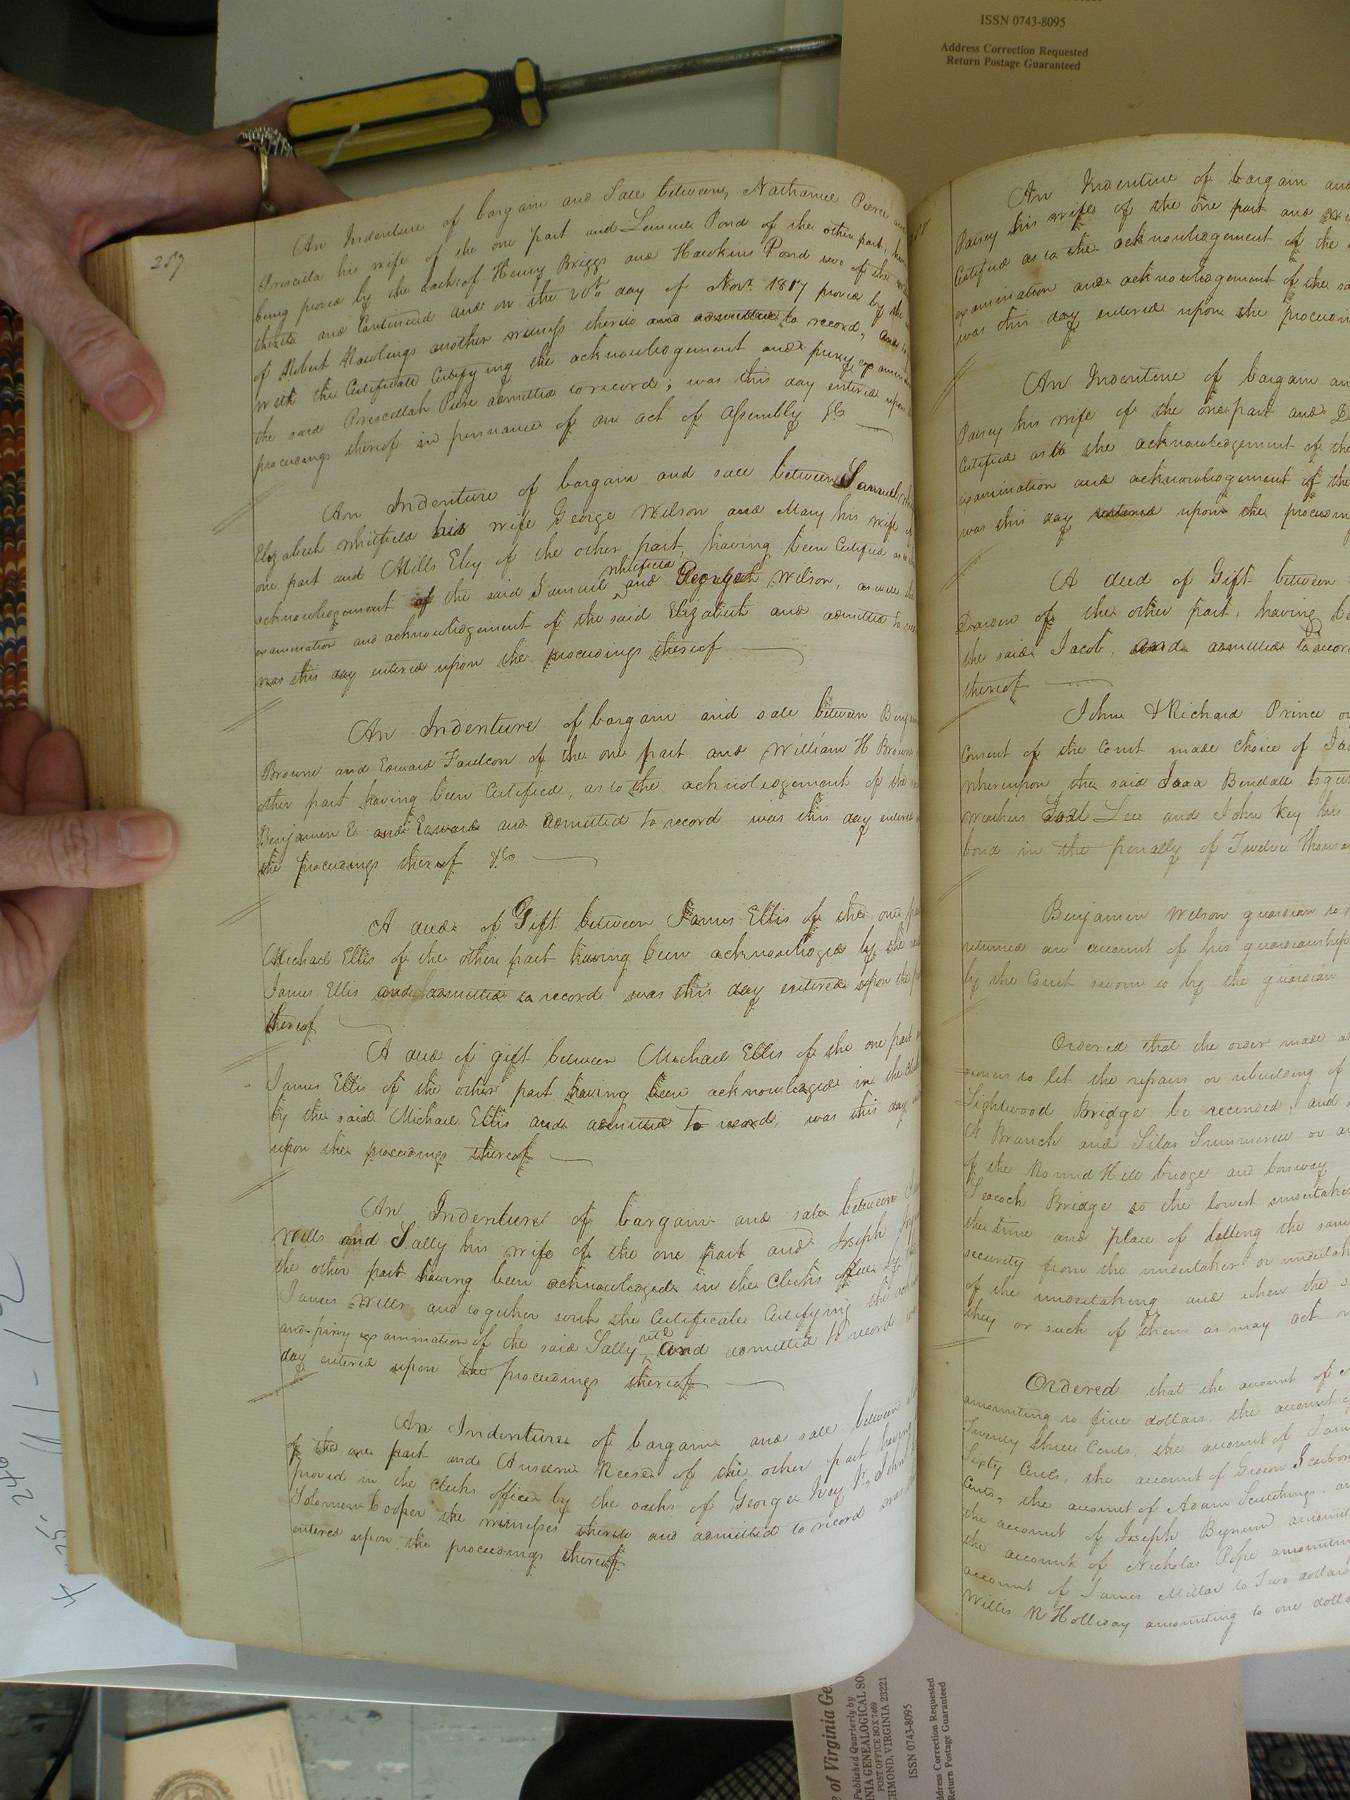 ISSN 0743-8095
Address Correction Requested
Return Postage Guaranteed
257
An Indenture of bargain and Sale between Nathaniel Pierce and
Priscilla his wife of the one part and Lemuel Pond of the other part,
being proved by the oaths of Henry Briggs and Hawkins Pond two of the
thereto and Continued and on the 20th day of Novr. 1817 proved by the
of Robert Rawlings another witness thereto and admitted to record, and
with the Certificate Certifying the acknowledgement and privy examin
the said Priscillah Pierce admitted to record; was this day entered upon
proceedings thereof in persuance of an act of Assembly &c
An Indenture of bargain and sale between Samuel
Elizabeth Whitfield his wife George Wilson and Mary his wife
one part and Mills Eley of the other part, having been Certified as
acknowledgement of the said Samuel Whitfield and George Wilson, as well
examination and acknowledgement of the said Elizabeth and admitted to
was this day entered upon the proceedings thereof
An Indenture of bargain and sale between Benj
Browne and Edward Faulcon of the one part and William H Browne
other part having been Certified, as to the acknowledgement of the
Benjamin E and Edward and admitted to record was this day entered
the proceedings thereof &c
A deed of Gift between James Ellis of the one part
Michael Ellis of the other part having been acknowledged by the
James Ellis and admitted to record was this day entered upon the
thereof
A deed of gift between Michael Ellis of the one part
James Ellis of the other part having been acknowledged in the
by the said Michael Ellis and admitted to record, was this day
upon the proceedings thereof
An Indenture of bargain and sale between
Wills and Sally his wife of the one part and Joseph
the other part having been acknowledged in the Clerks office by
James Wills and together with the Certificate Certifying the
and privy examination of the said Sally and admitted to record
day entered upon the proceedings thereof
An Indenture of bargain and sale between
of the one part and Anselm Reese of the other part having
proved in the clerks office by the oaths of George Ivey John
Solomon Cooper the witnesses thereto and admitted to record
entered upon the proceedings thereof
An Indenture of bargain and
Patsey his wife of the one part and
Certified as to the acknowledgement of the
examination and acknowledgement of the
was this day entered upon the proceedin
An Indenture of bargain an
Patsey his wife of the one part and D
Certified as to the acknowledgement of the
examination and acknowledgement of the
was this day entered upon the proceedin
A deed of Gift between
Darden of the other part, having
the said Jacob, and admitted to record
thereof
John & Richard Prince
Consent of the Court made choice of
whereupon the said Isaa Bendall
Joel Lee and John Key his
bond in the penalty of Twelve thousand
Benjamin Wilson guardian to
returned an account of his guardianship
by the Court sworn to by the guardian
Ordered that the order made
to let the repairs or rebuilding of
Lightwood Bridge be recinded, and
A Branch and Silas Summerell or
of the Round Hill bridge and Causway
Seacock Bridge to the lowest undertaker
the time and place of letting the same
security from the undertaker or undertak
of the undertaking and when the
they or such of them as may act
Ordered that the account of
amounting to five dollars, the account
Twenty three Cents, the account of James
Sixty Cents, the account of Gideon Scarboro
Cents, the account of Adam Scutchings,
the account of Joseph Bynum amount
the account of Nicholas Pope amounting
account of James Millar to Two dollars
Willis R Holliday amounting to one dolla
of Virginia Ge
Published Quarterly by
INIA GENEALOGICAL SO
POST OFFICE BOX 7469
HMOND, VIRGINIA 23221
ISSN 0743-8095
ddress Correction Requested
Return Postage Guaranteed